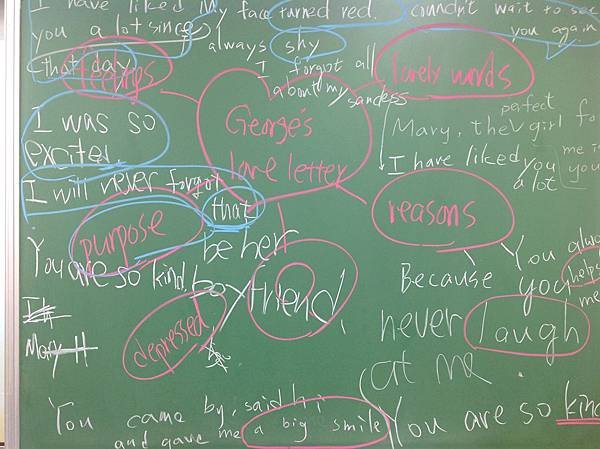 I have liked My face turned red. Couldn't wait to see
you a lot since always shy you again
that day I forgot all
feelings about my sadness lovely words
I was so George's perfect
exciter love letter Mary, the V girl for
me is you
I have liked you
a lot
I will never forgot that
purpose reasons
be her You always
You are so kind. boyfriend Because you helps me
never laugh
Mary H depressed at me.
You came by, said hi
and gave me a big smile You are so kind